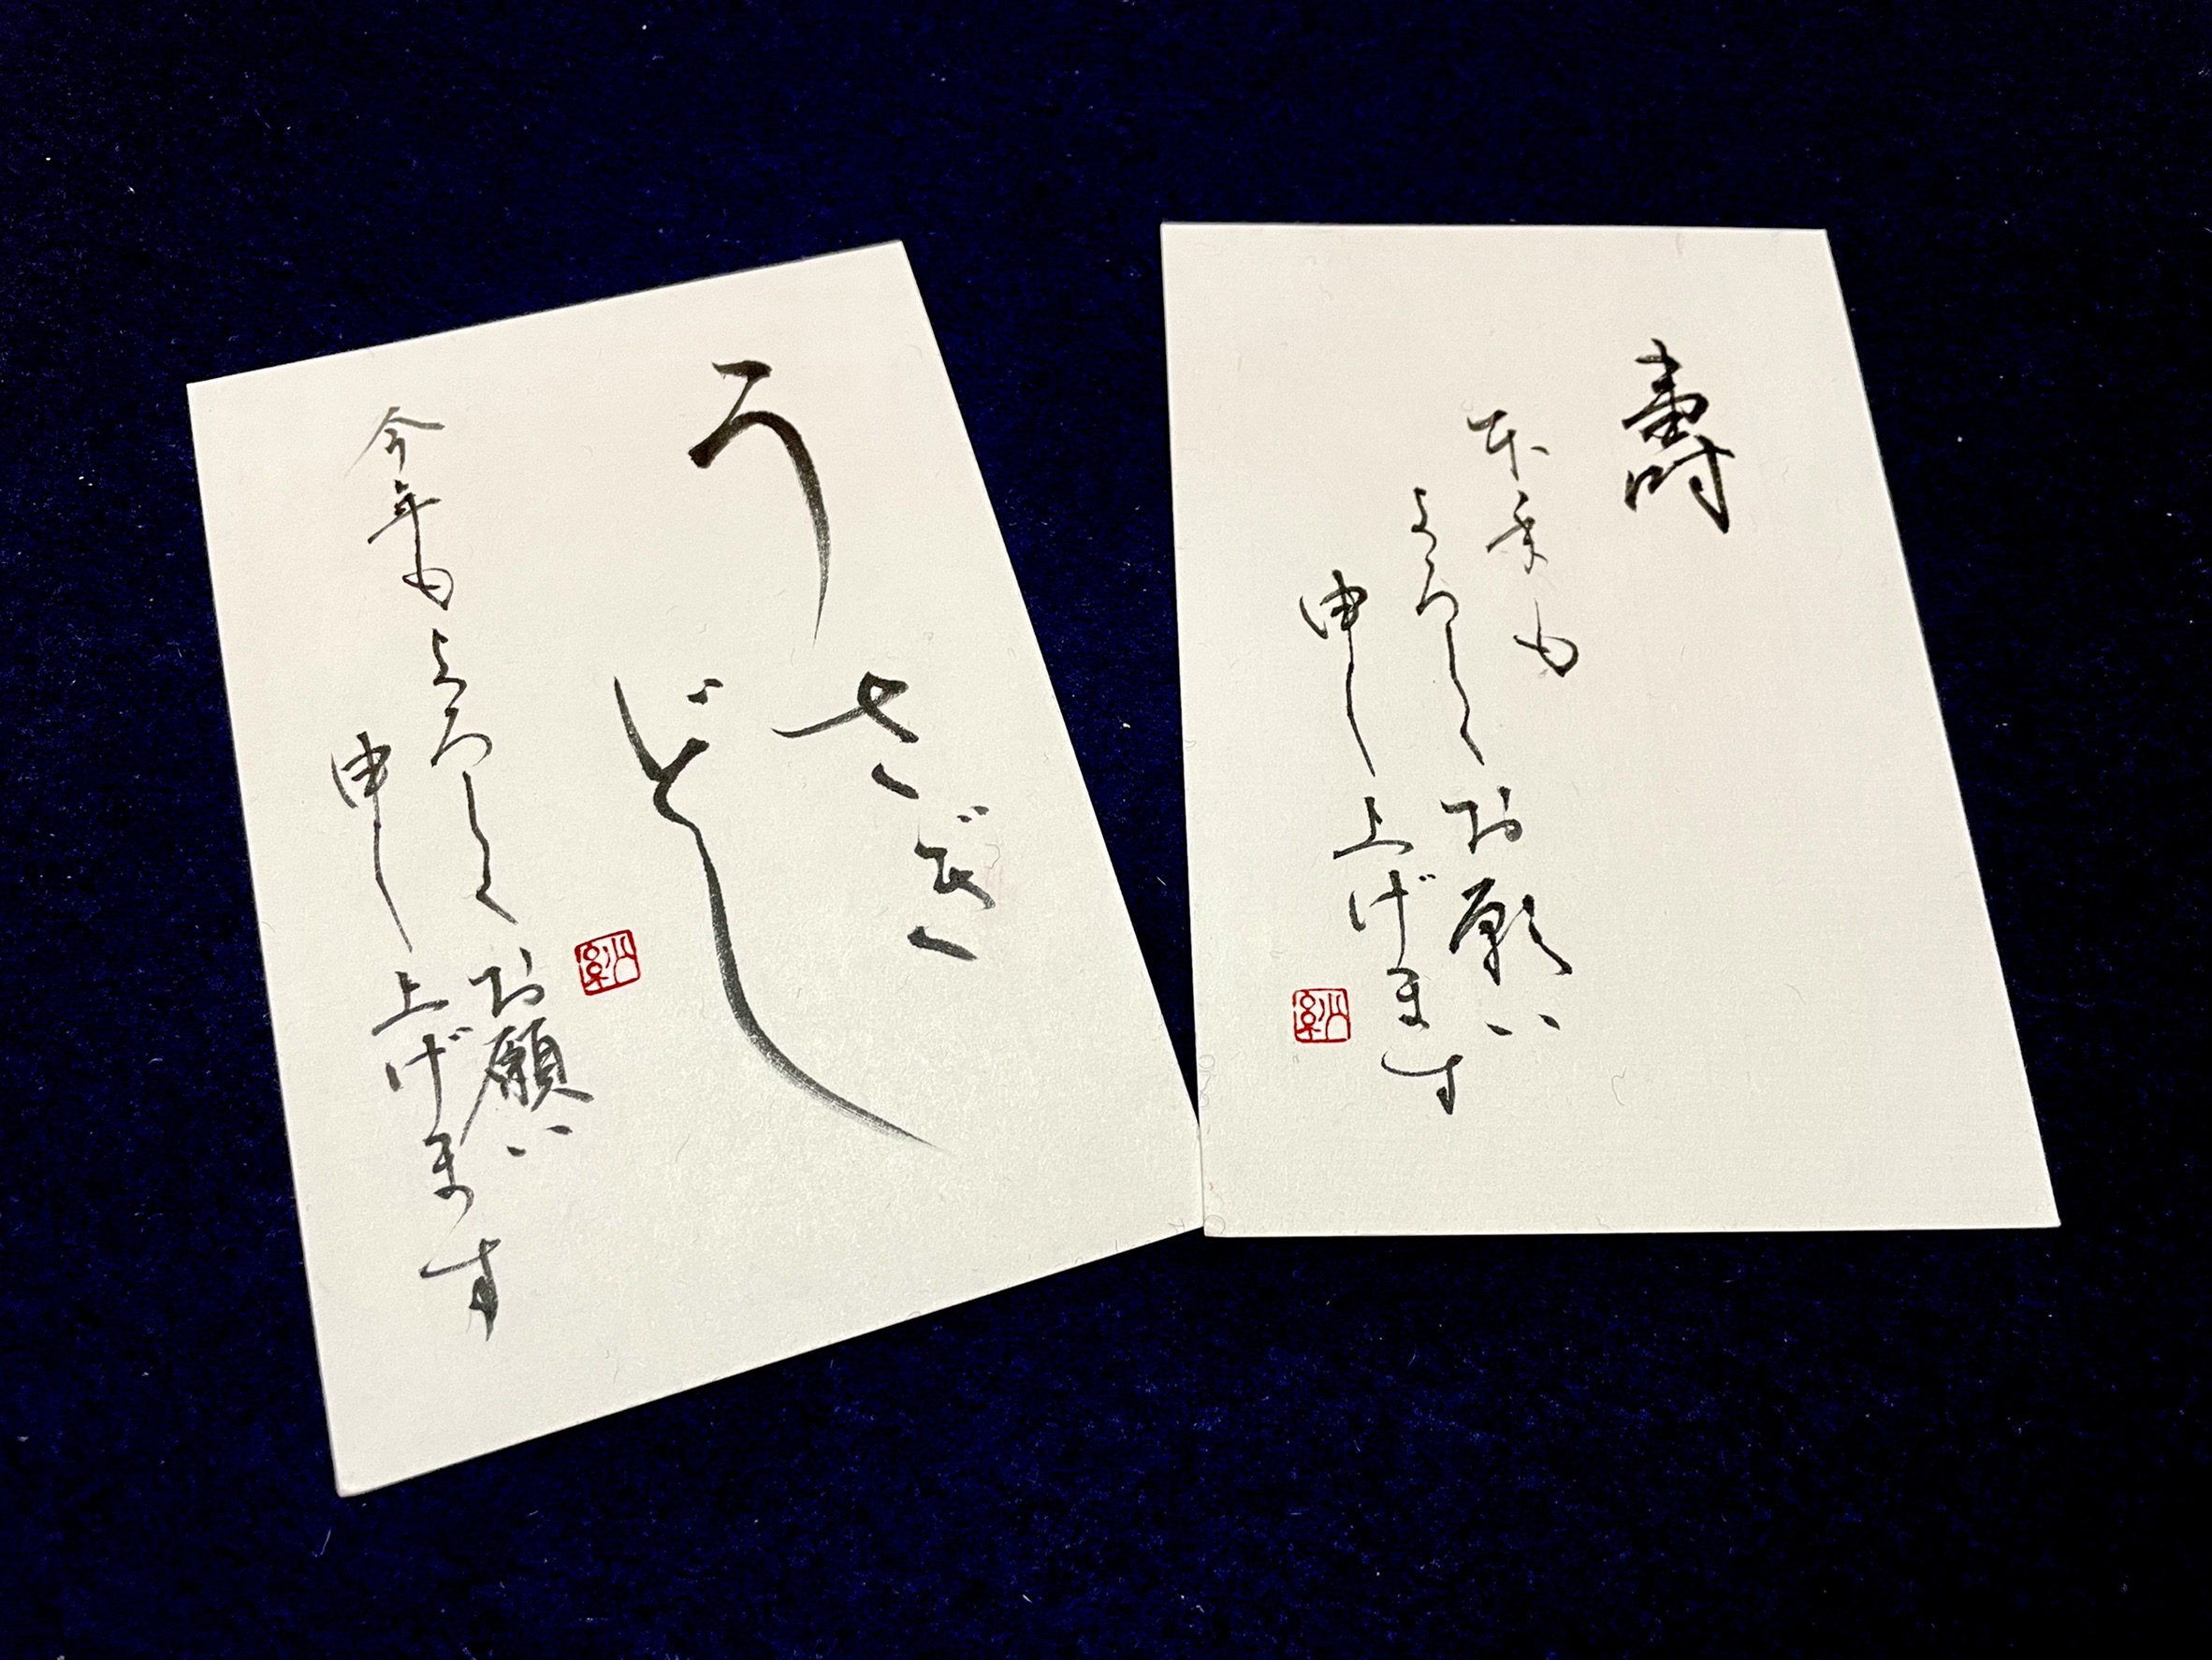 うさぎ
どし
今年も
よろしくお願い
申し上げます
紗
壽
本年も
よろしくお願い
申し上げます
紗